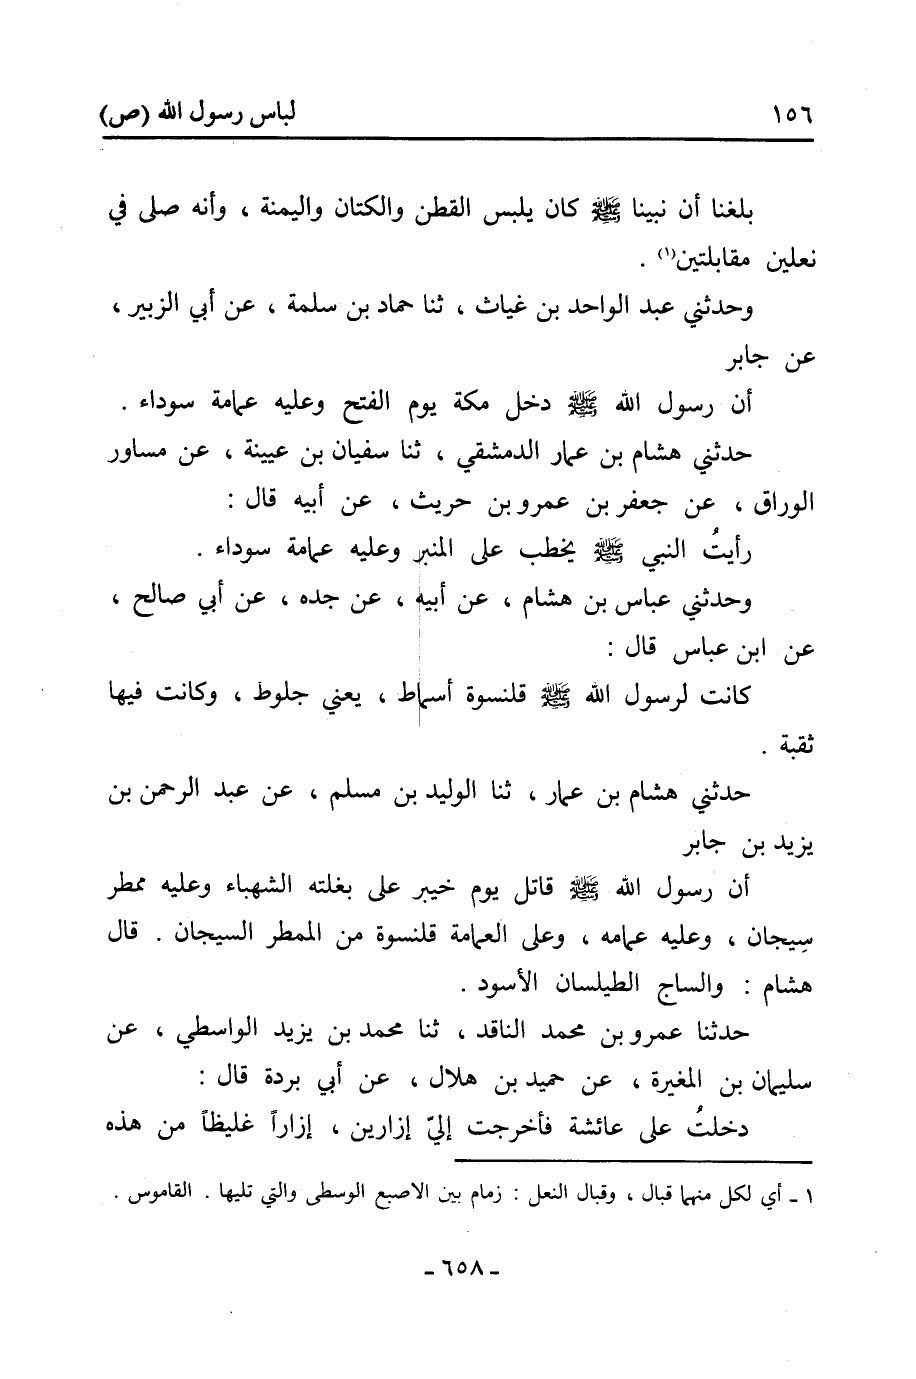 ١٥٦ لباس رسول الله (ص)
بلغنا أن نبينا ﷺ كان يلبس القطن والكتان واليمنة ، وأنه صلى في
نعلين مقابلتين(١) .
وحدثني عبد الواحد بن غياث ، ثنا حماد بن سلمة ، عن أبي الزبير ،
عن جابر
أن رسول الله ﷺ دخل مكة يوم الفتح وعليه عمامة سوداء .
حدثني هشام بن عمار الدمشقي ، ثنا سفيان بن عيينة ، عن مساور
الوراق ، عن جعفر بن عمرو بن حريث ، عن أبيه قال :
رأيتُ النبي ﷺ يخطب على المنبر وعليه عمامة سوداء .
وحدثني عباس بن هشام ، عن أبيه ، عن جده ، عن أبي صالح ،
عن ابن عباس قال :
كانت لرسول الله ﷺ قلنسوة أسماط ، يعني جلوط ، وكانت فيها
ثقبة .
حدثني هشام بن عمار ، ثنا الوليد بن مسلم ، عن عبد الرحمن بن
يزيد بن جابر
أن رسول الله ﷺ قاتل يوم خيبر على بغلته الشهباء وعليه ممطر
سِيجان ، وعليه عمامه ، وعلى العمامة قلنسوة من الممطر السيجان . قال
هشام : والساج الطيلسان الأسود .
حدثنا عمرو بن محمد الناقد ، ثنا محمد بن يزيد الواسطي ، عن
سليمان بن المغيرة ، عن حميد بن هلال ، عن أبي بردة قال :
دخلتُ على عائشة فأخرجت إليّ إزارين ، إزاراً غليظاً من هذه
١ ـ أي لكل منهما قبال ، وقبال النعل : زمام بين الاصبع الوسطى والتي تليها . القاموس .
ـ ٦٥٨ ـ